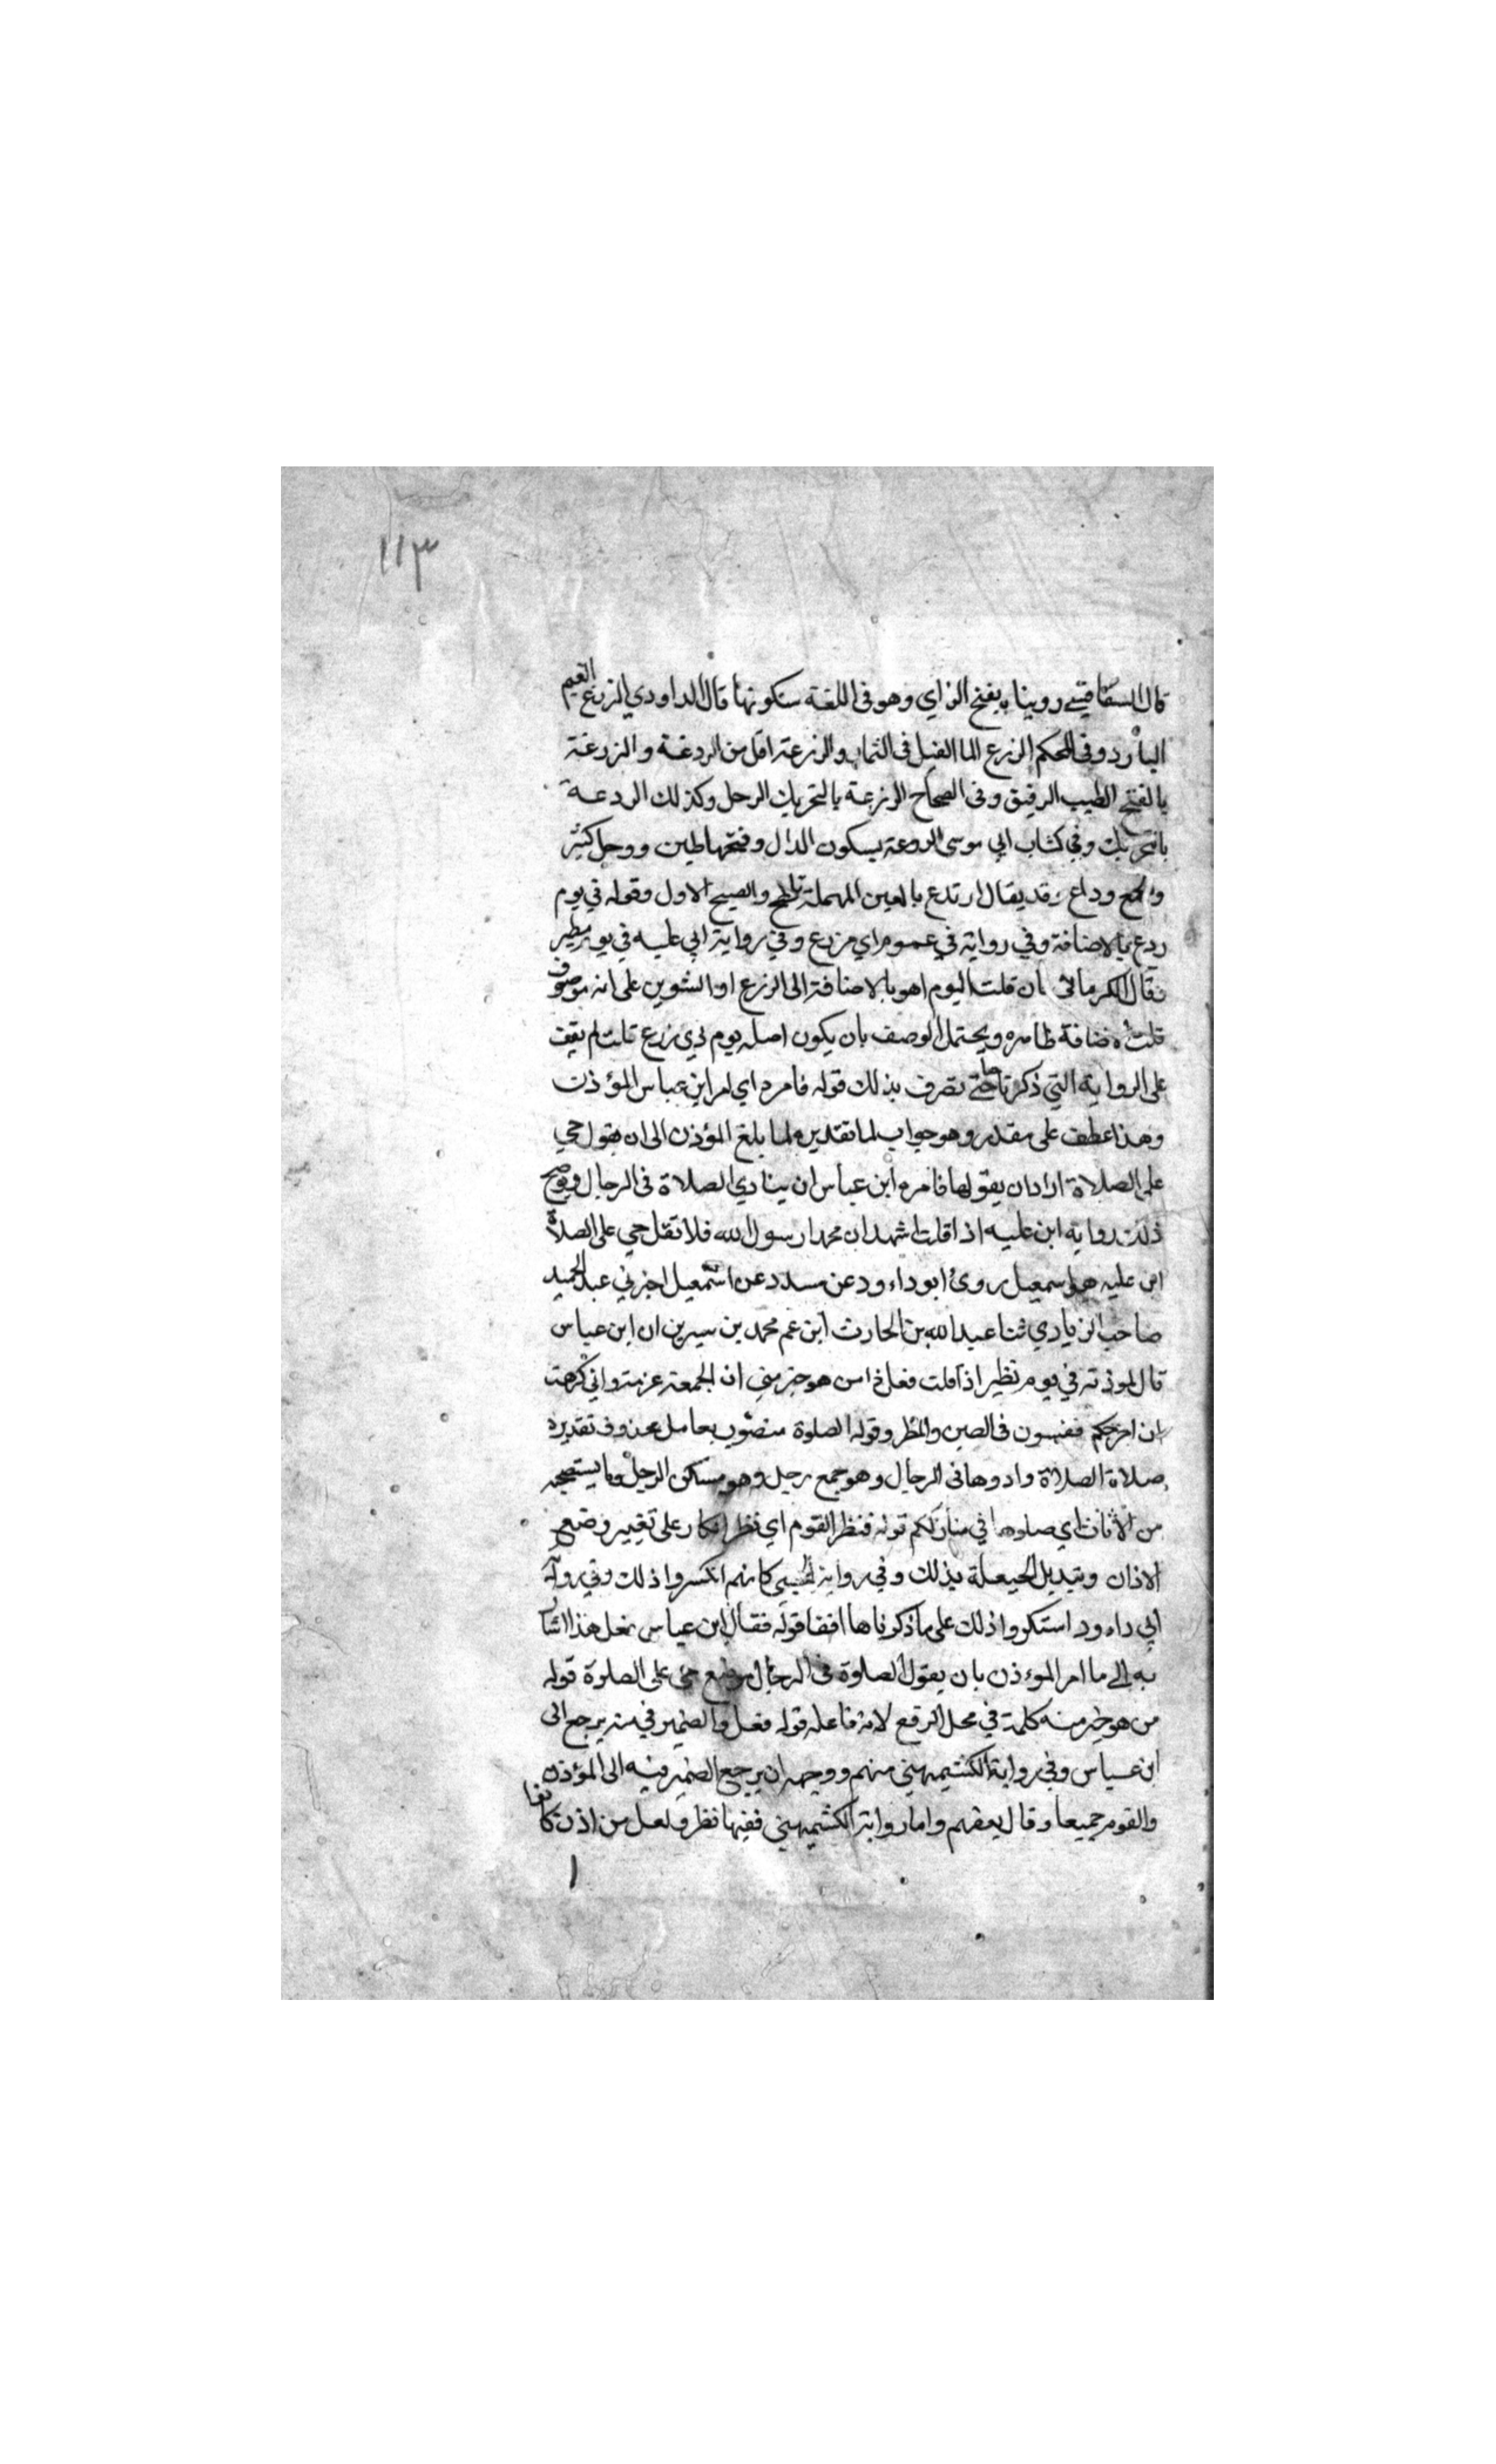 ١١٣
قال السفاقسي روينا بفتح الزاي وهو في اللغة سكونها قال الداودي الرزغ الغيم
البارد وفي المحكم الرزع الما القليل في الثماد والرزعة اقل من الردغة والزدغة
بالفتح الطيب الرقيق وفي الصحاح الرزعة بالتحريك الوحل وكذلك الردعة
بالتحريك وفي كتاب ابي موسى الردعة بسكون الدال وفتحها طين ووحل كثير
والجمع رداع وقد يقال ارتدع بالعين المهملة تلطخ والصحيح الاول وقوله في يوم
ردع بالاضافة وفي رواية في يوم اي مزدع وفي رواية ابن عليه في يوم مطير
فقال الكرماني فان قلت اليوم اهو بالاضافة الى الرزع او التنوين على انه موصوف
قلت الاضافة ظاهره ويحتمل الوصف بان يكون اصله يوم ذي رزع قلت لم يقف
على الرواية التي ذكرناها حتى تصرف بذلك قوله فامره اي امر ابن عباس المؤذن
وهذا عطف على مقدر وهو جواب لما تقديره لما بلغ المؤذن الى ان يقول حي
على الصلاة اراد ان يقولها فامره ابن عباس ان ينادي الصلاة في الرحال ويوضح
ذلك رواية ابن عليه اذا قلت اشهد ان محمدا رسول الله فلا تقل حي على الصلاة
ابن عليه هو اسمعيل روى ابو داود عن مسدد عن اسمعيل اخبرني عبد الحميد
صاحب الزيادي ثنا عبد الله بن الحارث ابن عم محمد بن سيرين ان ابن عباس
قال لموذنه في يوم مطير اذا قلت فعل ذا من هو خير مني ان الجمعة عزمة واني كرهت
ان احرجكم فتمشون في الطين والمطر وقوله الصلوة منصوب بعامل محذوف تقديره
صلاة الصلاة وادوها في الرحال وهو جمع رحل وهو مسكن الرجل وما يستصحبه
من الاثاث اي صلوها في منازلكم قوله فنظر القوم اي نظر انكار على تغيير وضع
الاذان وتبديل الحيعلة بذلك وفي رواية الحجبي كانهم انكروا ذلك وفي رواية
ابي داود استنكروا ذلك على ما ذكرناها انفا قوله فقال ابن عباس فعل هذا اشار
به الى ما امر الموءذن بان يقول الصلوة في الرحال موضع حي على الصلوة قوله
من هو خير منه كلمة في محل الرفع لانه فاعله قوله فعل والضمير في منه يرجع الى
ابن عباس وفي رواية الكشميهني منهم ووجهه ان يرجع الضمير فيه الى المؤذن
والقوم جميعا وقال بعضهم واما رواية الكشميهني ففيها نظر ولعل من اذن كانوا